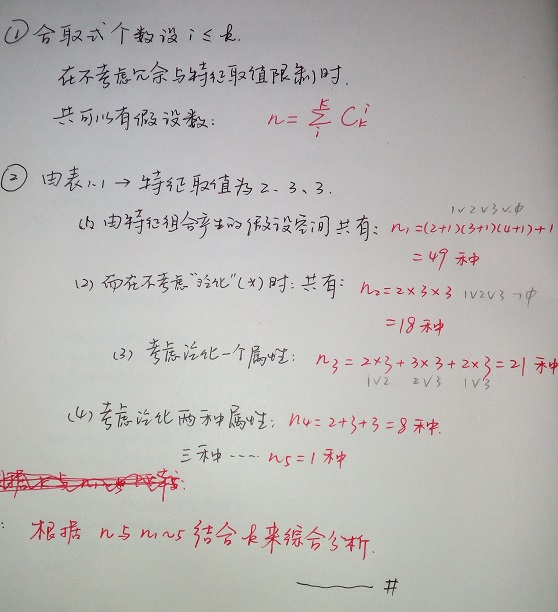 ① 合取式个数设 i ≤ k.
在不考虑冗余与特征取值限制时.
共可以有假设数: n = ∑ᵢᵏ Cₖⁱ
② 由表1.1 → 特征取值为2、3、3.
1∨2∨3∨.∅
(1) 由特征组合产生的假设空间共有: n₁=(2+1)(3+1)(4+1)+1
= 49 种
(2) 而在不考虑"泛化"(*)时: 共有: n₂=2×3×3 1∨2∨3 ¬∅
=18种
(3) 考虑泛化一个属性: n₃ = 2×3+3×3+2×3=21种
1∨2 2∨3 1∨3
(4) 考虑泛化两种属性: n₄=2+3+3=8种.
三种····· n₅=1种
根据 n与n₁~₅结合k来综合分析.
#